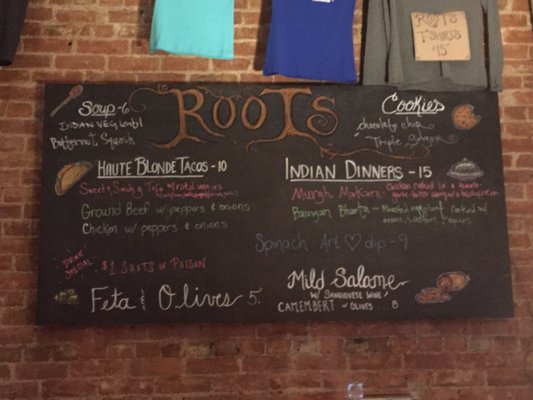 ROOTS
T-SHIRTS
$15
ROOTS
SOUP - 6
INDIAN VEG Lentil
Butternut Squash
COOKIES
chocolate chip
Triple Ginger
HAUTE BLONDE TACOS - 10
Sweet & Smoky Tofu w/ rstd veggies
Ground Beef w/ peppers & onions
Chicken w/ peppers & onions
INDIAN DINNERS - 15
Murgh Makani - Chicken cooked in a tomato
Baingan Bharta - Roasted eggplant cooked w/
Spinach Art ♡ dip - 9
DRINK
SPECIAL
$1 SHOTS OF POISON
Feta & Olives 5.
Mild Salame
w/ SANGIOVESE WINE
CAMEMBERT w/ OLIVES ... 8